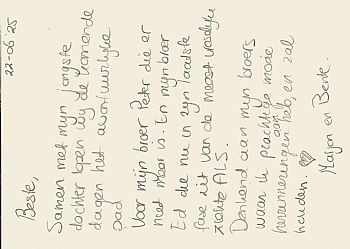 22-06-25
Beste,
Samen met mijn jongste
dochter lopen wij de komende
dagen het avontuurlijke
pad
Voor mijn broer Peter die er
niet meer is. En mijn broer
Ed die nu in zijn laatste
fase zit van de meest vreselijke
ziekte ALS.
Denkend aan mijn broers
waar ik prachtige mooie
aan
herinneringen heb, en zal
houden.
Marjon en Bente.